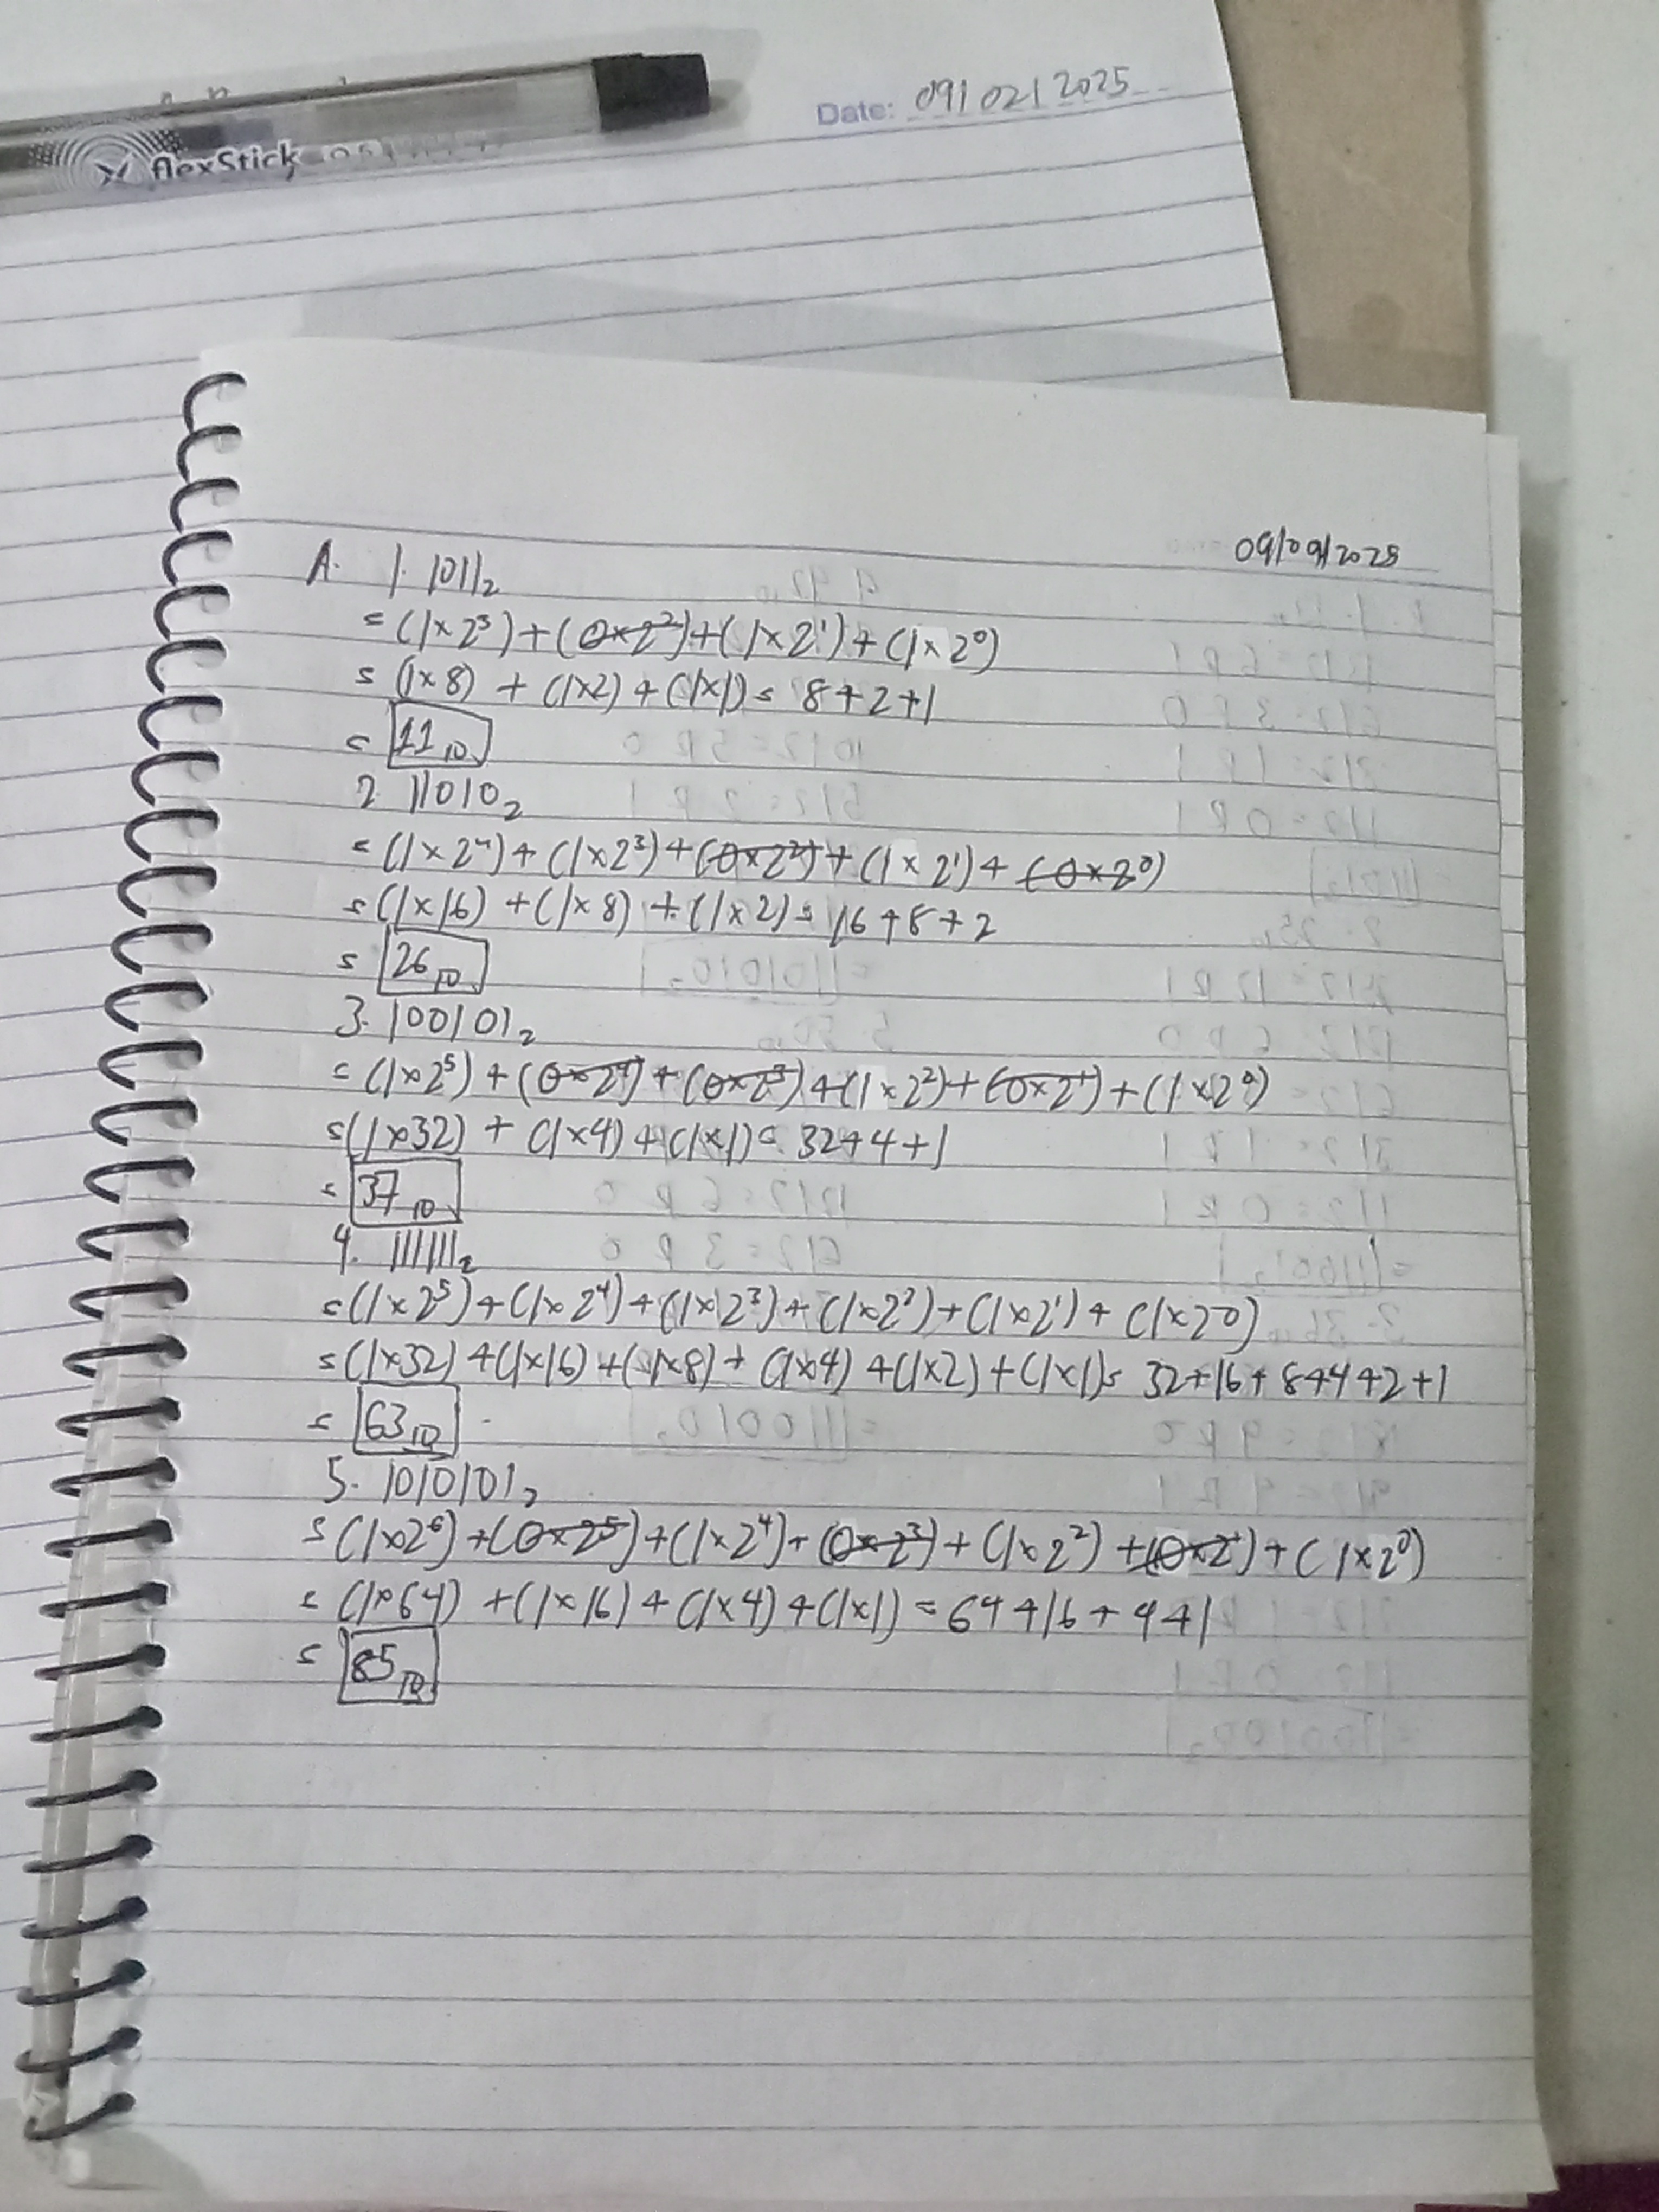 Date: 09/02/2025
flexStick
09/09/2025
A. 1. 1011₂
= (1×2³)+(0×2²)+(1×2¹)+(1×2⁰)
= (1×8) + (1×2) + (1×1) = 8+2+1
= 11₁₀
2. 11010₂
= (1×2⁴)+(1×2³)+(0×2²)+(1×2¹)+(0×2⁰)
= (1×16)+(1×8)+(1×2) = 16+8+2
= 26₁₀
3. 100101₂
= (1×2⁵)+(0×2⁴)+(0×2³)+(1×2²)+(0×2¹)+(1×2⁰)
=(1×32) + (1×4)+(1×1) = 32+4+1
= 37₁₀
4. 111111₂
=(1×2⁵)+(1×2⁴)+(1×2³)+(1×2²)+(1×2¹)+(1×2⁰)
=(1×32)+(1×16)+(1×8)+(1×4)+(1×2)+(1×1)= 32+16+8+4+2+1
= 63₁₀
5. 1010101₂
= (1×2⁶)+(0×2⁵)+(1×2⁴)+(0×2³)+(1×2²)+(0×2¹)+(1×2⁰)
= (1×64)+(1×16)+(1×4)+(1×1) = 64+16+4+1
= 85₁₀